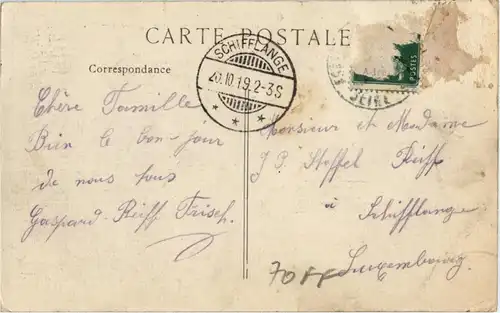 CARTE POSTALE
Correspondance
SCHIFFLANGE
20.10.19.2-3S
POSTES
SEINE
Chère Famille
Bien le bon-jour
de nous tous
Gaspard-Reiff Frisch.
Monsieur et Madame
J P. Stoffel Reiff
à
Schifflange
Luxembourg
70 FF